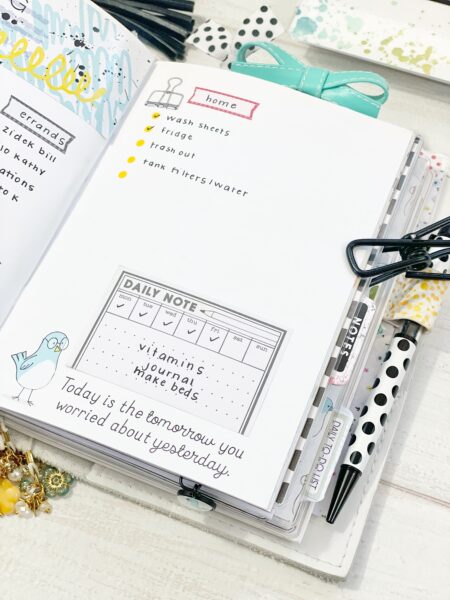 errands
zidek bill
kathy
to K
home
wash sheets
Fridge
trash out
tank filters/water
DAILY NOTE
mon tue wed thu fri sat sun
vitamins
journal
make beds
Today is the tomorrow you
worried about yesterday.
NOTES
DAILY TO-DO LIST